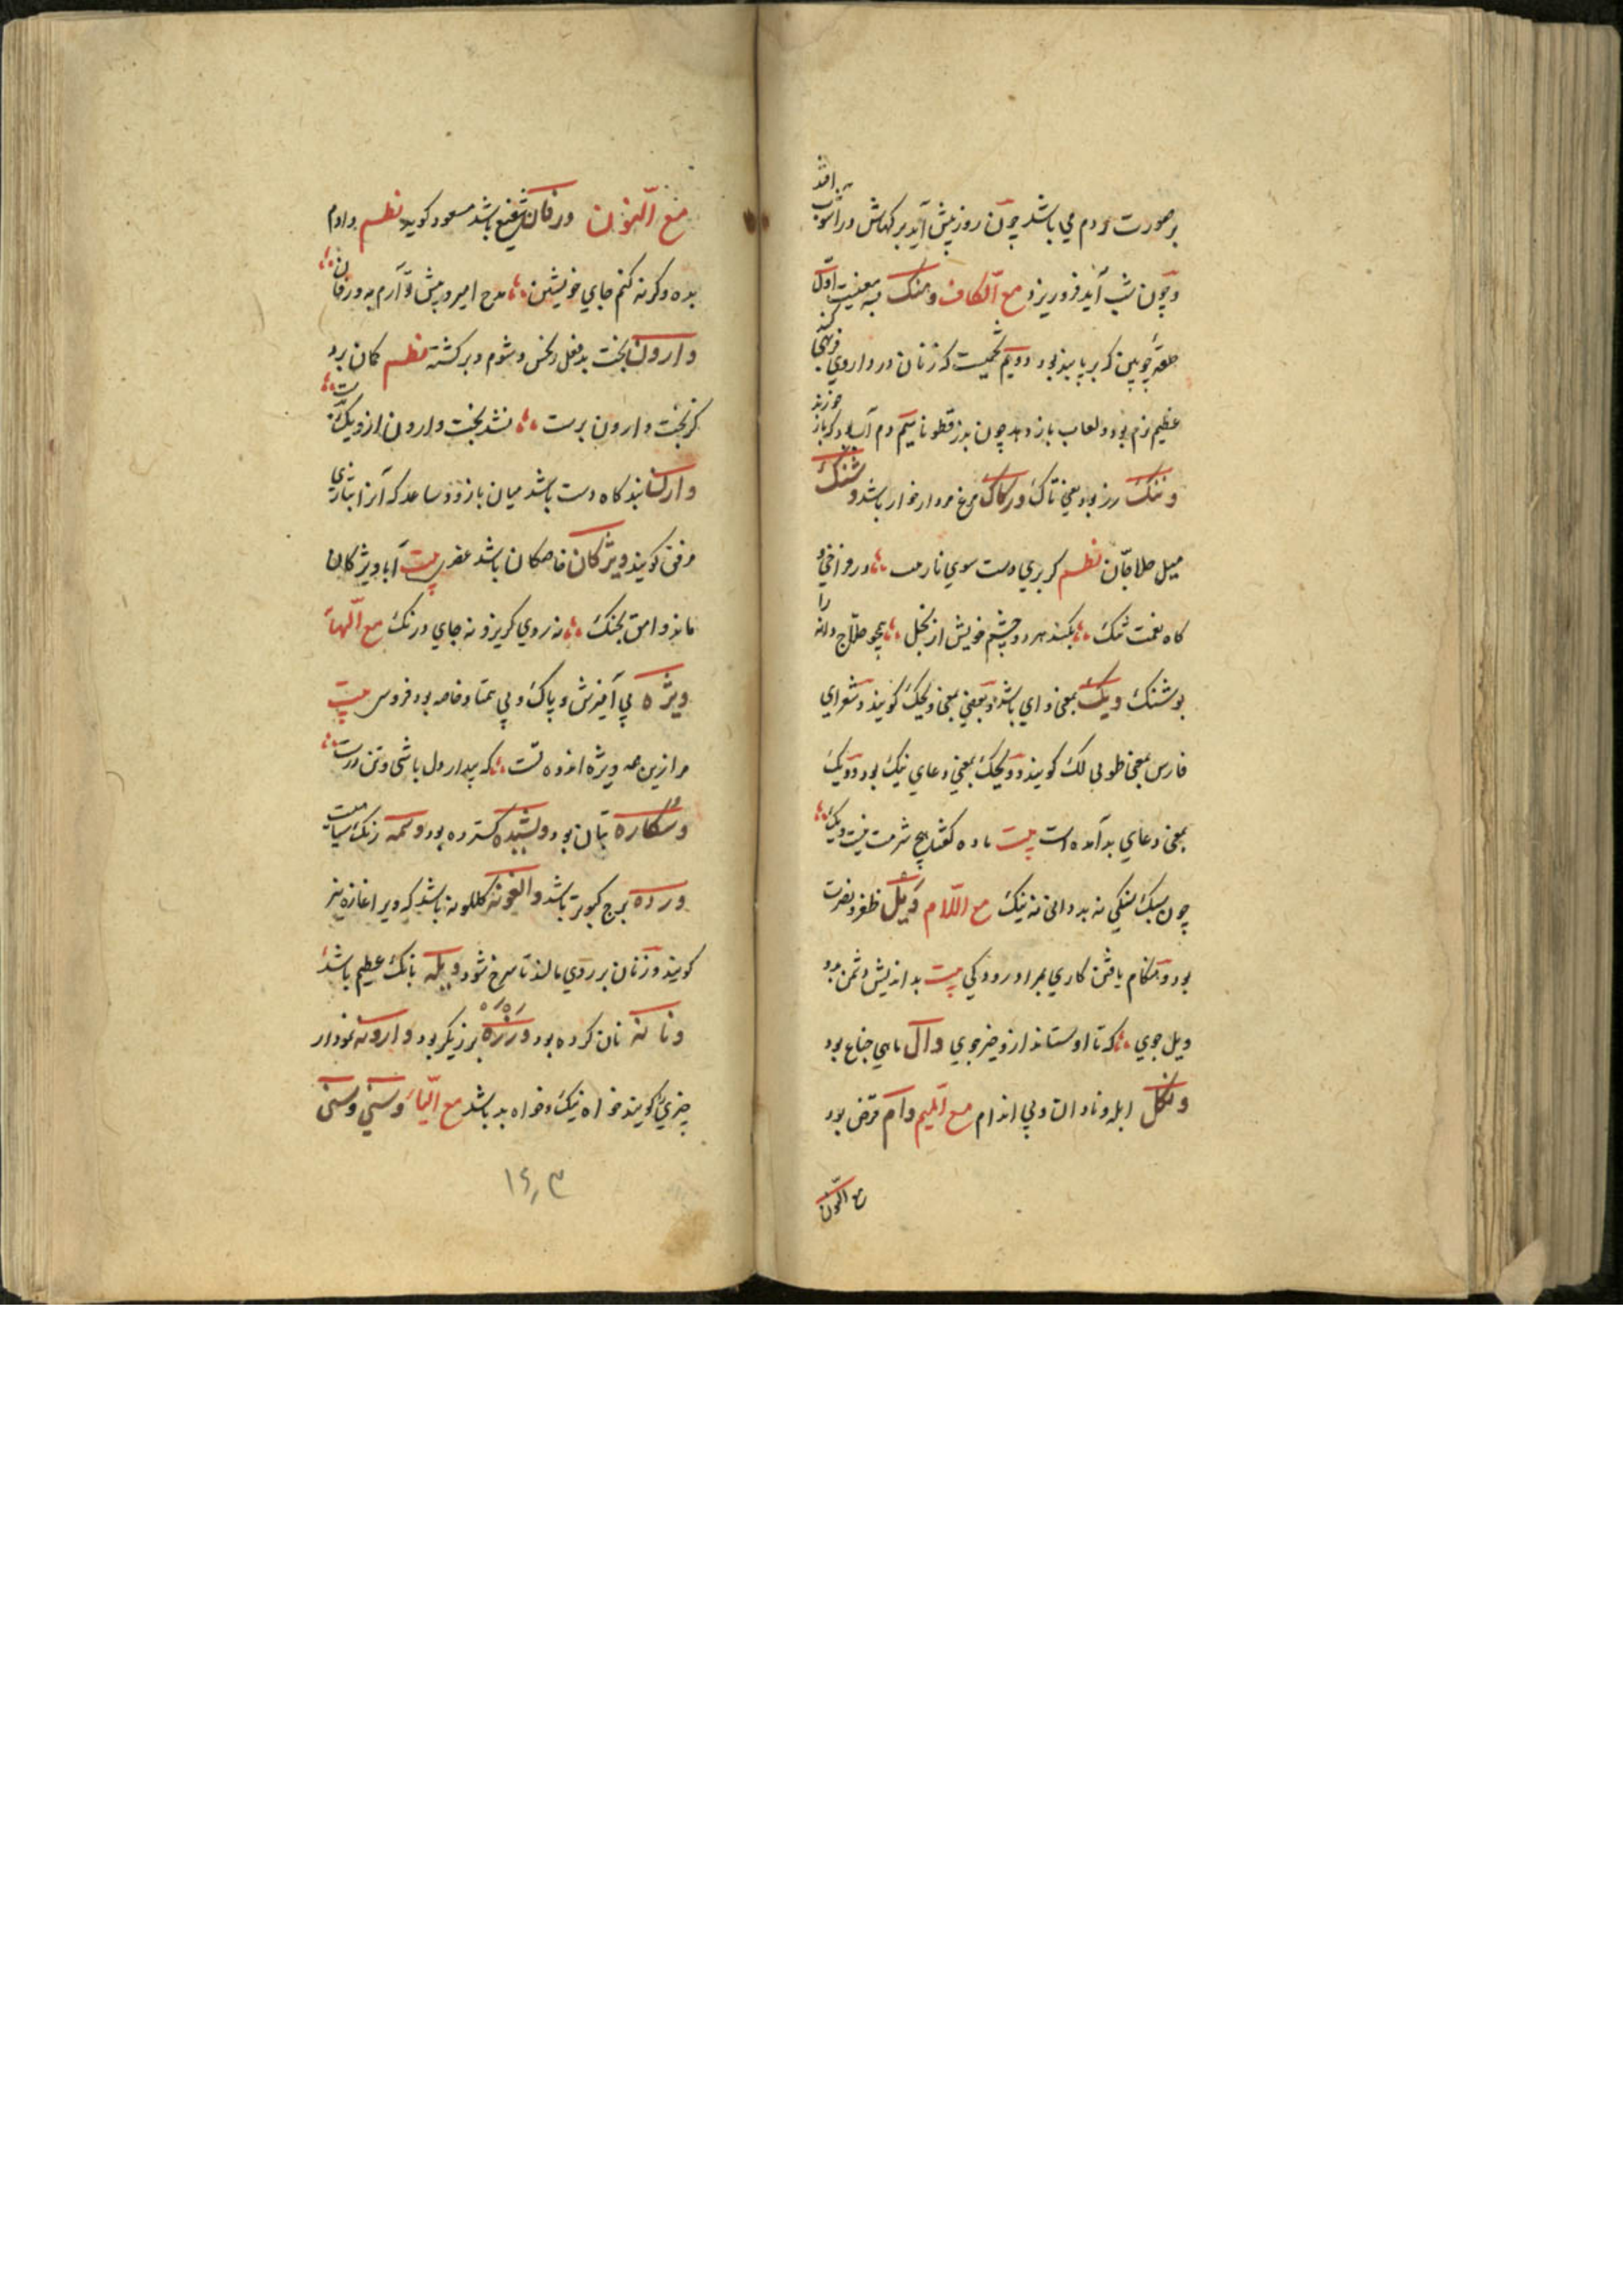 بر صورت مردم می باشد چون روز پیش آید بر کهاش در آشوب افتد
و چون شب آید فرو ریزد مع الکاف ونـنک به معنیست اول
حلقهٔ چوبین که بر پا بند بود دویم تخمیست که زنان در داروی فربهی کنند
عظیم نرم بود و لعاب باز دهد چون بذر قطونا سیم دم آسا و کر باز خورند
وننک رز بود یعنی تاک ورکاک مرغ مردار خوار باشد وشنک
میل حلاجان نظم کر بری دست سوی نار من در فراخی و
کاه نعمت تنک بکند هر دو چشم خویش از بخل همچو حلاج دانه را
بو شنک ویک بمعنی وای باشد و بعضی بمعنی ویحک کویند و شعرای
فارس بمعنی طوبی لک کویند و ویحک بمعنی دعای نیک بود و ویک
بمعنی دعای بد آمده است بیت ماده کفتا هیچ شرمت نیست ویک
چون سبک سنکی نه بد دانی نه نیک مع اللام ویل ظفر و نصرت
بود و هنکام یافتن کاری بمراد رودکی بیت بد اندیش دشمن بود
ویل جوی که تا او ستاند از و خیر جوی وال ماهی جناع بود
ونکل ابله و نادان و بی اندام مع المیم وام قرض بود
مع النون
مع النون ورفان شفیع باشد مسعود کوید نظم دادم
بده وکرنه کنم جای خویشتن مدح امیر و پیش تو آرم به ورفان
وارون بخت بد فعل و نحس و شوم و برکشته نظم کان برد
کز بخت وارون برست نشد بخت وارون از و یک
وارن بند کاه دست باشد میان بازو و ساعد که آنرا بتازی
مرفق کویند ویژکان خاصکان باشد عنصری بیت آبا ویژکان
ماند وامق بجنک نه روی کریز و نه جای درنک مع الهاء
ویژه بی آمیزش و پاک و بی همتا و خاصه بود فردوسی بیت
مرا زین همه ویژه اندوه تست که بیدار دل باشی و تن درست
وسکاره بتان بود وبشیده کسترده بود وسمه رنک سیاهیست
ورده برج کبوتر باشد والغونه کلکونه باشد که ویرا غازه نیز
کویند و زنان بر روی مالند تا سرخ شود ویله بانک عظیم باشد
ونانه نان کرده بود ورزه برزیکر بود وارونه نمودار
چیزی کویند خواه نیک و خواه بد باشد مع الیاء وسنی وسنی